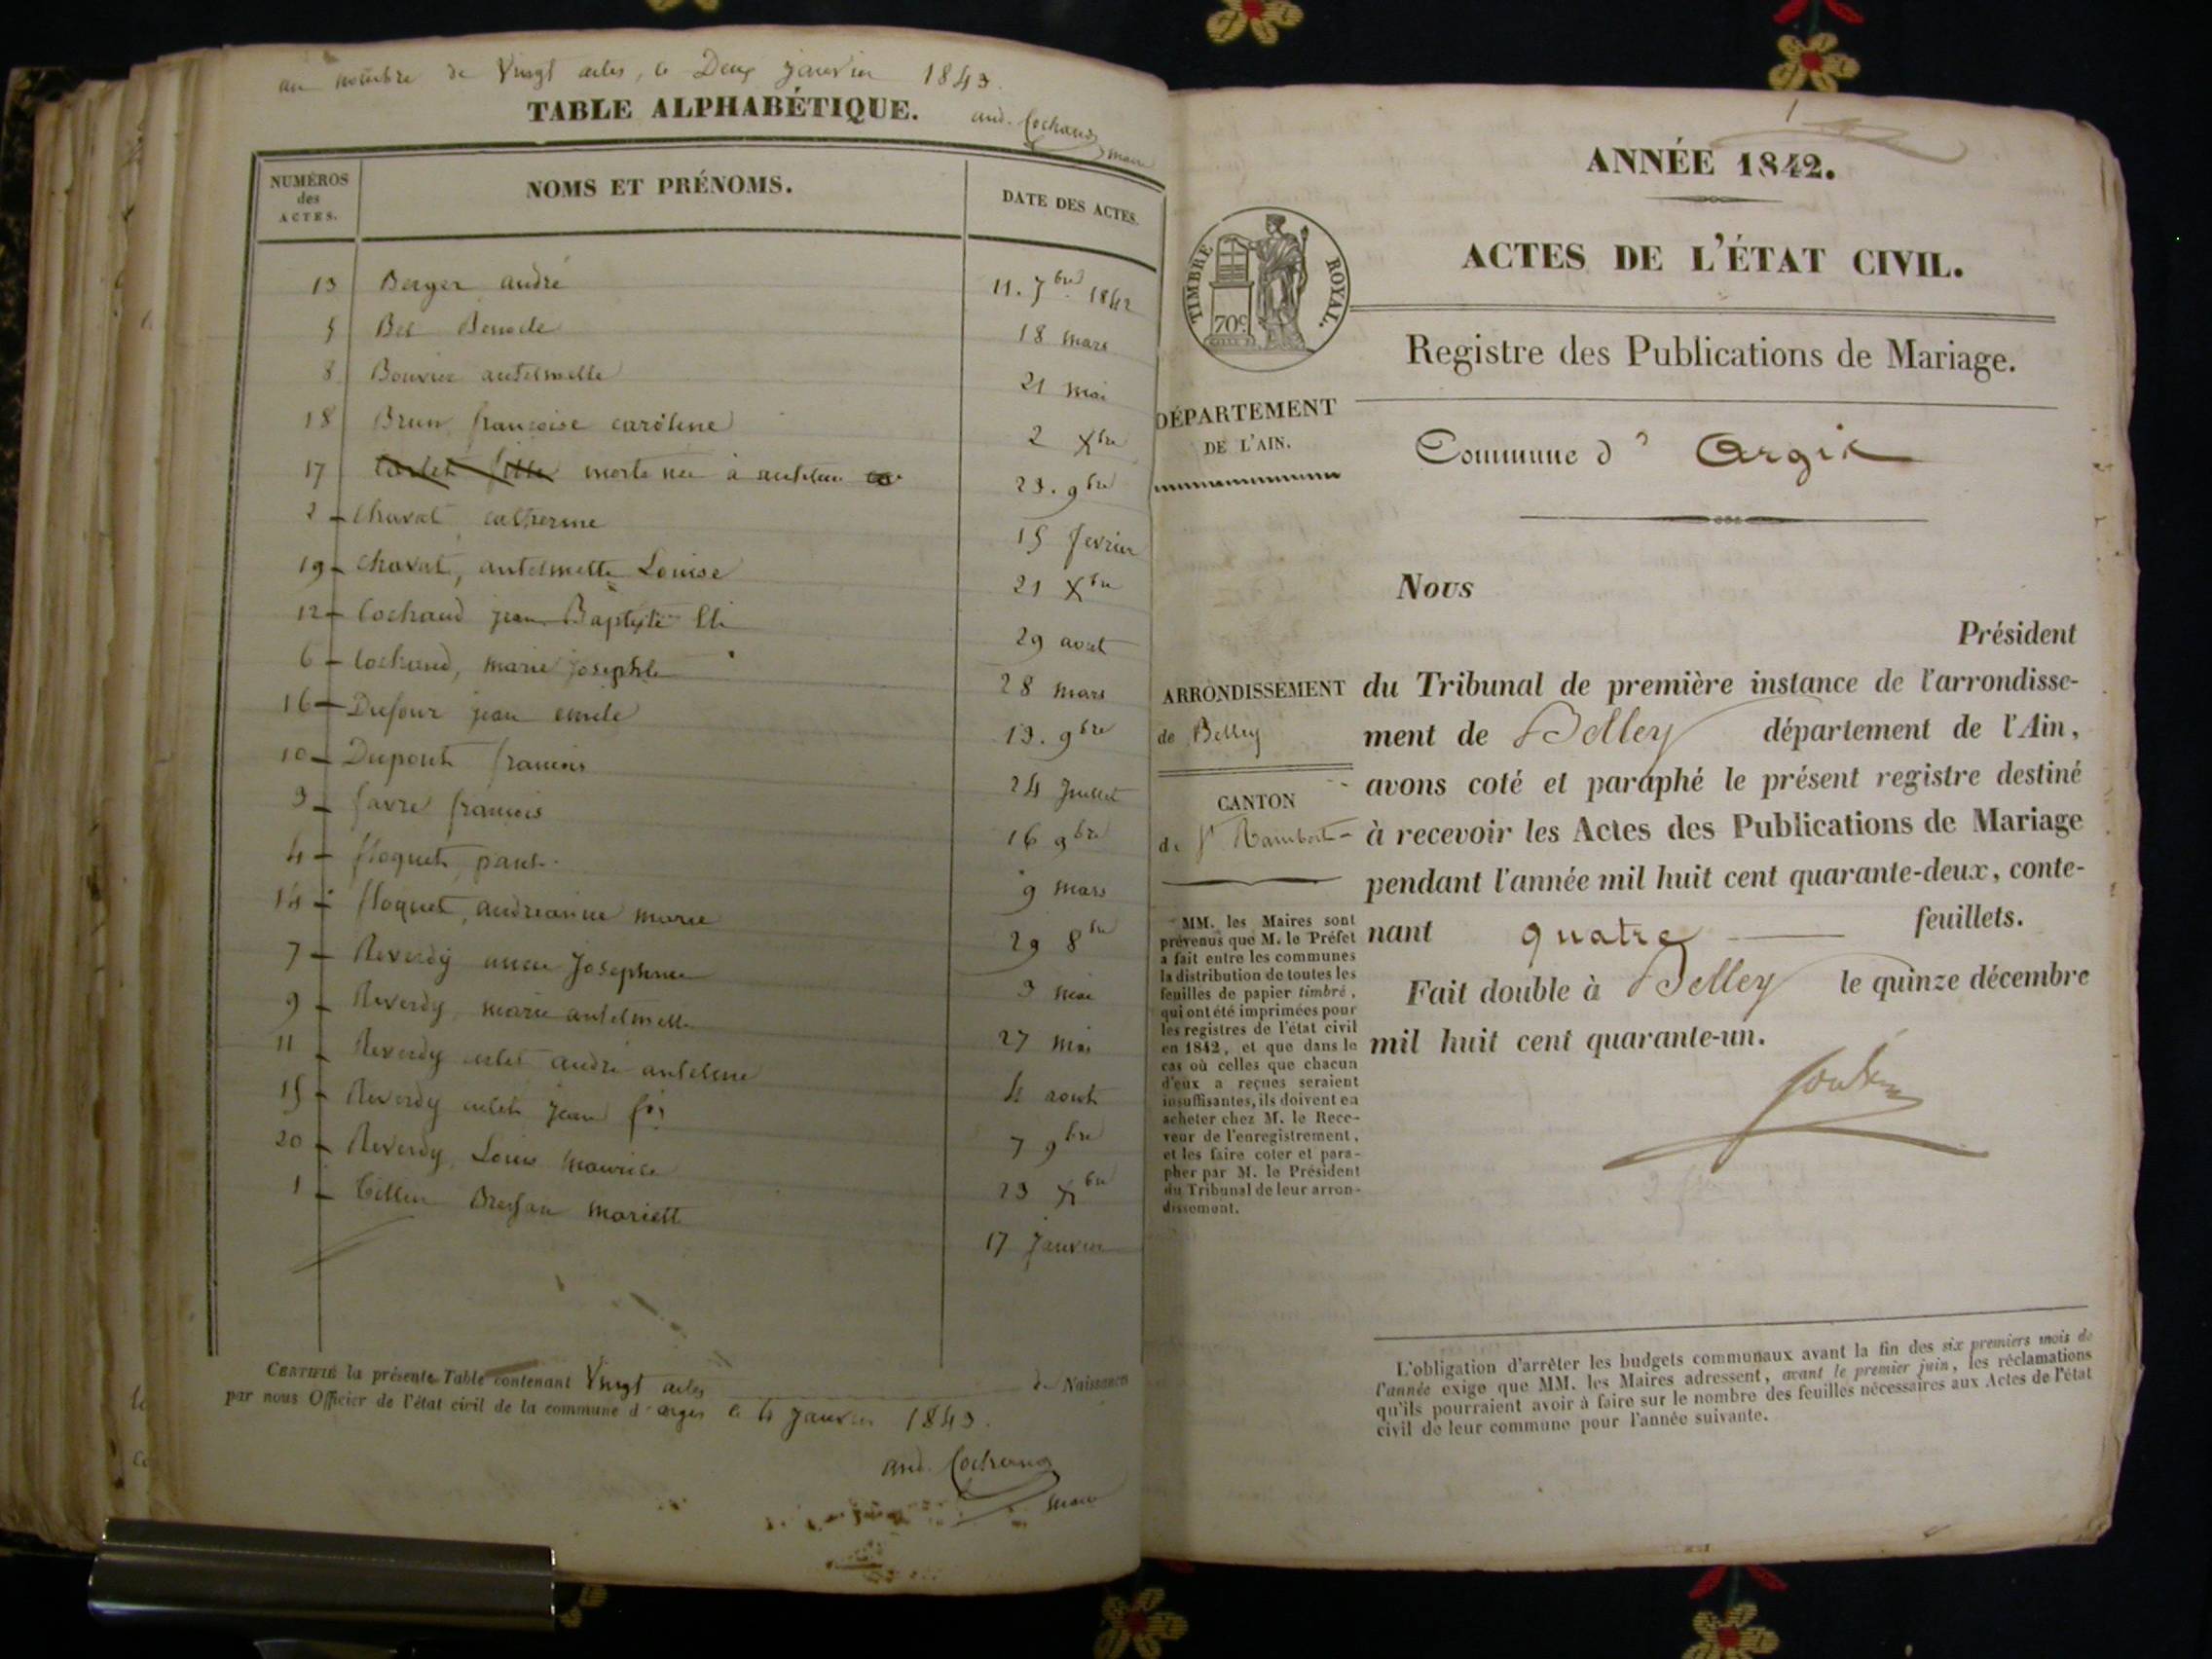 au nombre de Vingt actes, le Deux janvier 1843.
and. Cochaud
maire
TABLE ALPHABÉTIQUE.
NUMÉROS
des
ACTES.
NOMS ET PRÉNOMS.
DATE DES ACTES.
13 Berger andré 11. 7bre 1842
5 Bel Benoite 18 mars
8 Bouvier antelmette 21 mai
18 Brun françoise caroline 2 Xbre
17 morte née à 23. 9bre
2 Chavat catherine 15 fevrier
19 Chavat, antelmette Louise 21 Xbre
12 Cochaud jean Baptiste 29 aout
6 Cochaud, marie josephte 28 mars
16 Dufour jean emile 13. 9bre
10 Dupont francois 24 Juillet
3 favre francois 16 9bre
4 floquet, paul. 9 mars
14 floquet, andréanne marie 29 8bre
7 Reverdy Josephine 3 mai
9 Reverdy, marie antelmette 27 mai
11 Reverdy andré antelme 4 aout
15 Reverdy jean fois 7 9bre
20 Reverdy, Louis maurice 23 Xbre
1 mariett 17 Janvier
CERTIFIÉ la présente Table contenant Vingt actes de Naissances
par nous Officier de l'état civil de la commune d'argis le 4 janvier 1843.
and. Cochaud
maire
1
ANNÉE 1842.
ACTES DE L'ÉTAT CIVIL.
TIMBRE ROYAL.
70c
Registre des Publications de Mariage.
DÉPARTEMENT
DE L'AIN.
Commune d' Argis
Nous
Président
ARRONDISSEMENT
de Belley
CANTON
de St Rambert
du Tribunal de première instance de l'arrondisse-
ment de Belley département de l'Ain,
avons coté et paraphé le présent registre destiné
à recevoir les Actes des Publications de Mariage
pendant l'année mil huit cent quarante-deux, conte-
nant quatre feuillets.
Fait double à Belley le quinze décembre
mil huit cent quarante-un.
MM. les Maires sont
prévenus que M. le Préfet
a fait entre les communes
la distribution de toutes les
feuilles de papier timbré,
qui ont été imprimées pour
les registres de l'état civil
en 1842, et que dans le
cas où celles que chacun
d'eux a reçues seraient
insuffisantes, ils doivent en
acheter chez M. le Rece-
veur de l'enregistrement,
et les faire coter et para-
pher par M. le Président
du Tribunal de leur arron-
dissement.
L'obligation d'arrêter les budgets communaux avant la fin des six premiers mois de
l'année exige que MM. les Maires adressent, avant le premier juin, les réclamations
qu'ils pourraient avoir à faire sur le nombre des feuilles nécessaires aux Actes de l'état
civil de leur commune pour l'année suivante.